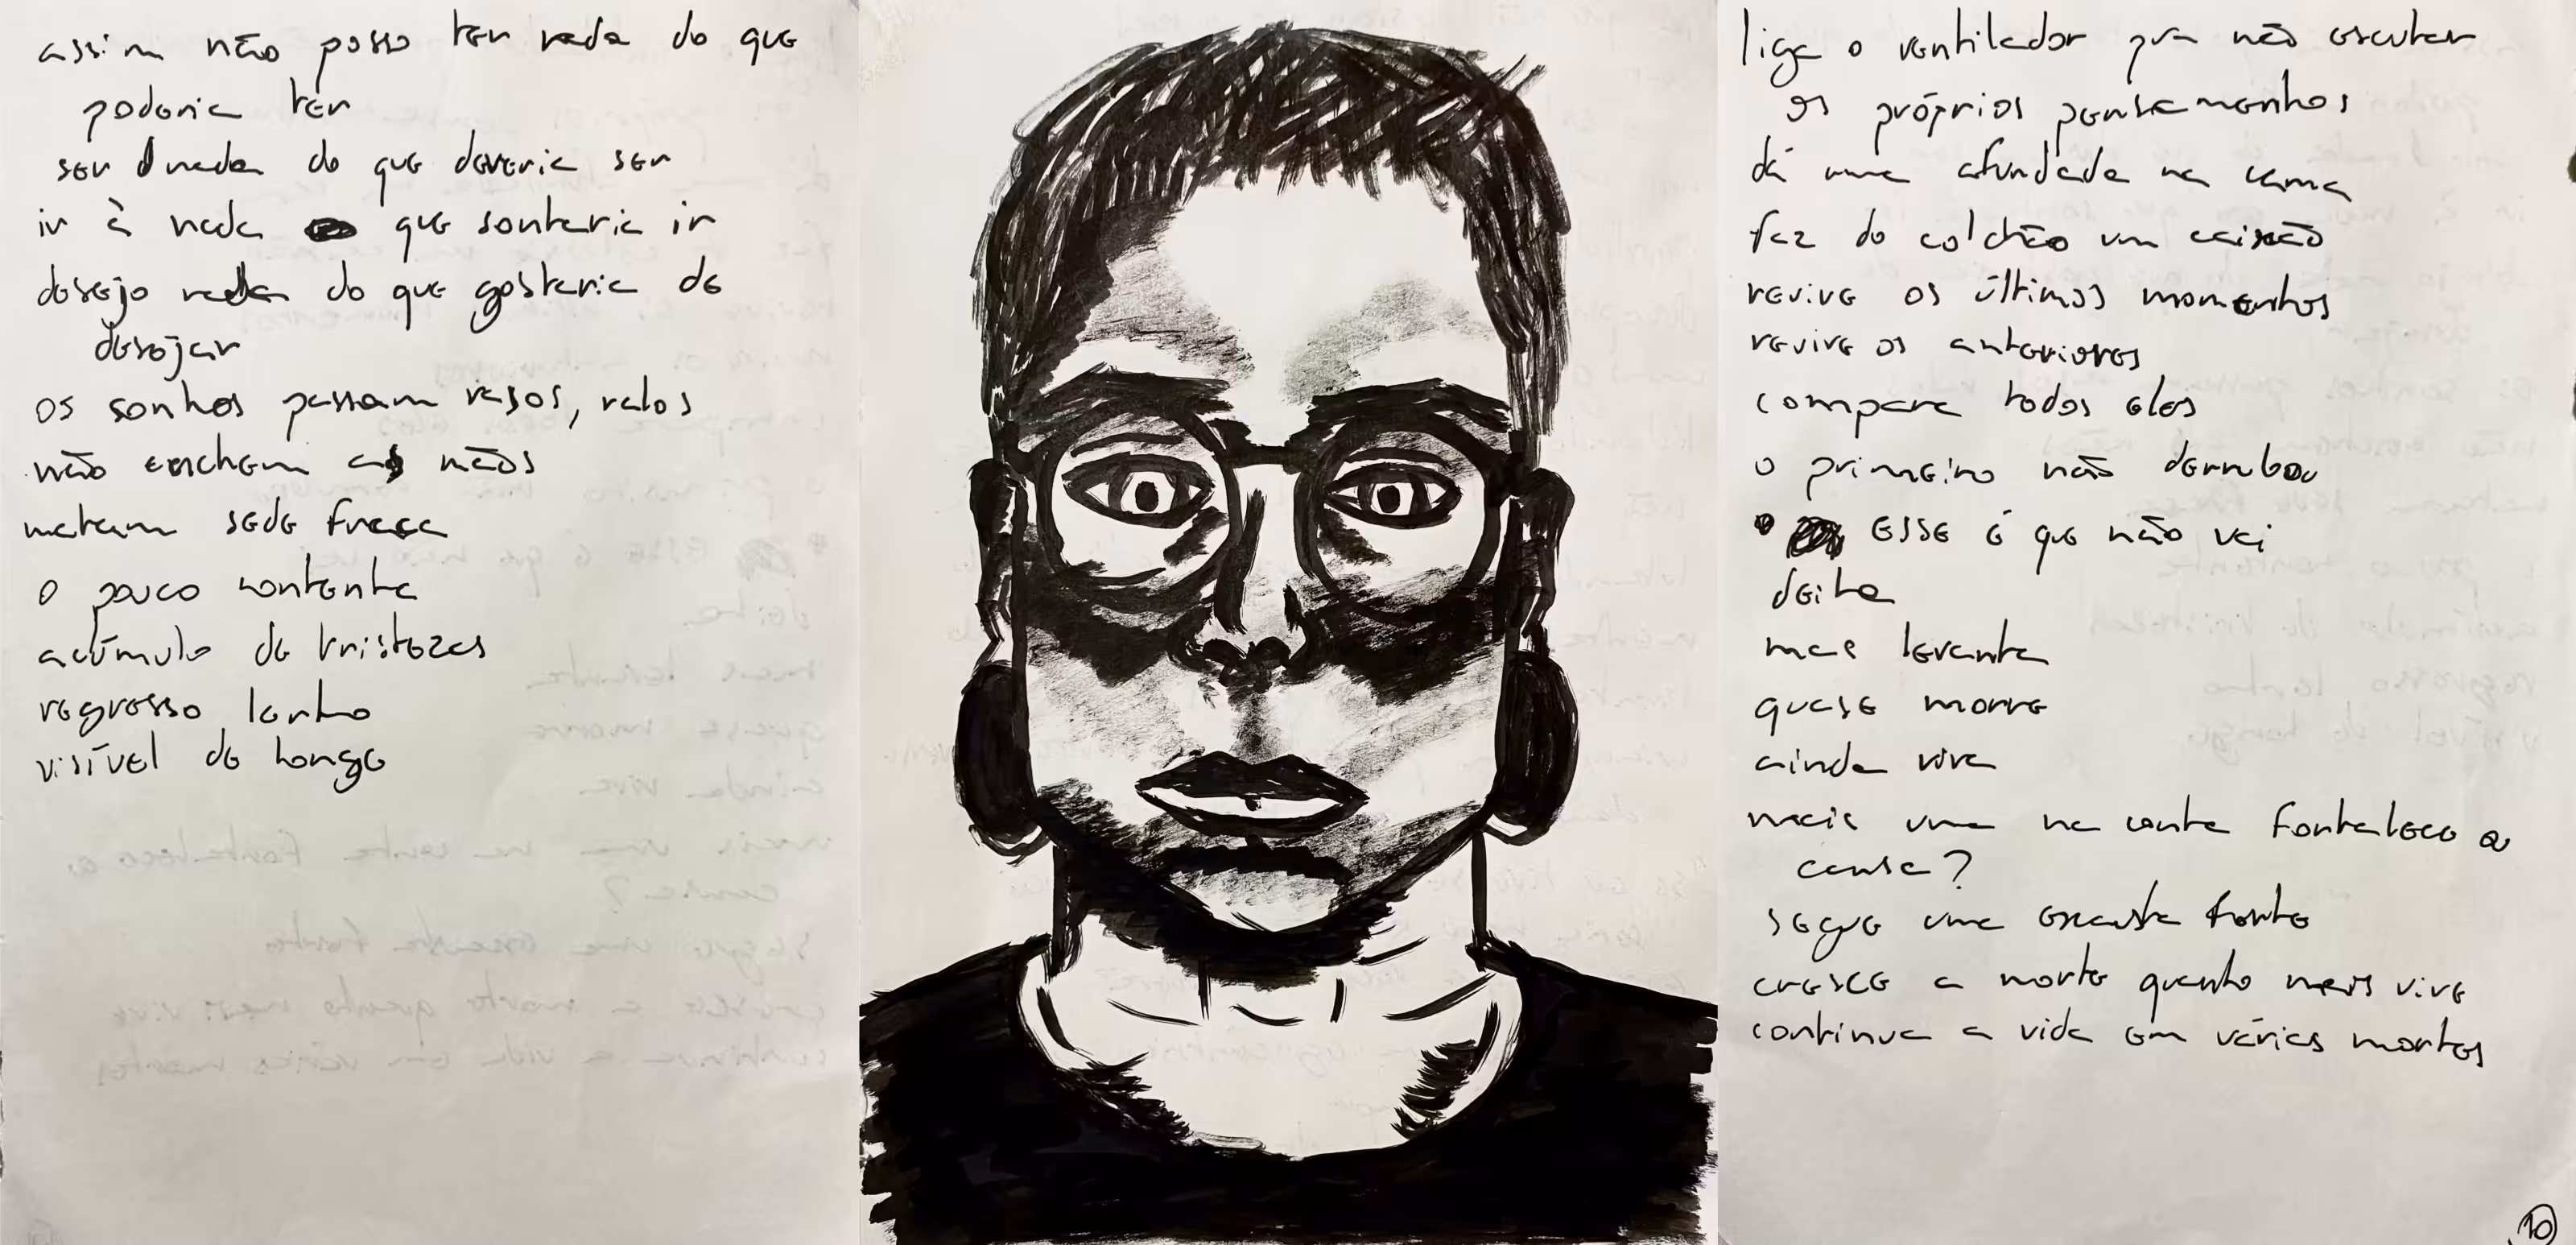 assim não posso ter nada do que
poderia ter
ser nada do que deveria ser
ir à nada que sontaria ir
desejo nada do que gostaria de
desejar
os sonhos passam rasos, ralos
não enchem as mãos
matam sede fraca
o pouco contenta
acúmulo de tristezas
regresso lento
visível de longe
liga o ventilador pra não escutar
os próprios pensamentos
dá uma afundada na cama
faz do colchão um caixão
revive os últimos momentos
revive os anteriores
compara todos eles
o primeiro não derrubou
esse é que não vai
deita
mas levanta
quase morre
ainda vive
mais uma na conta fortalece a
causa?
segue uma exausta fonte
cresce a morte quanto mais vive
continua a vida em várias mortes
10